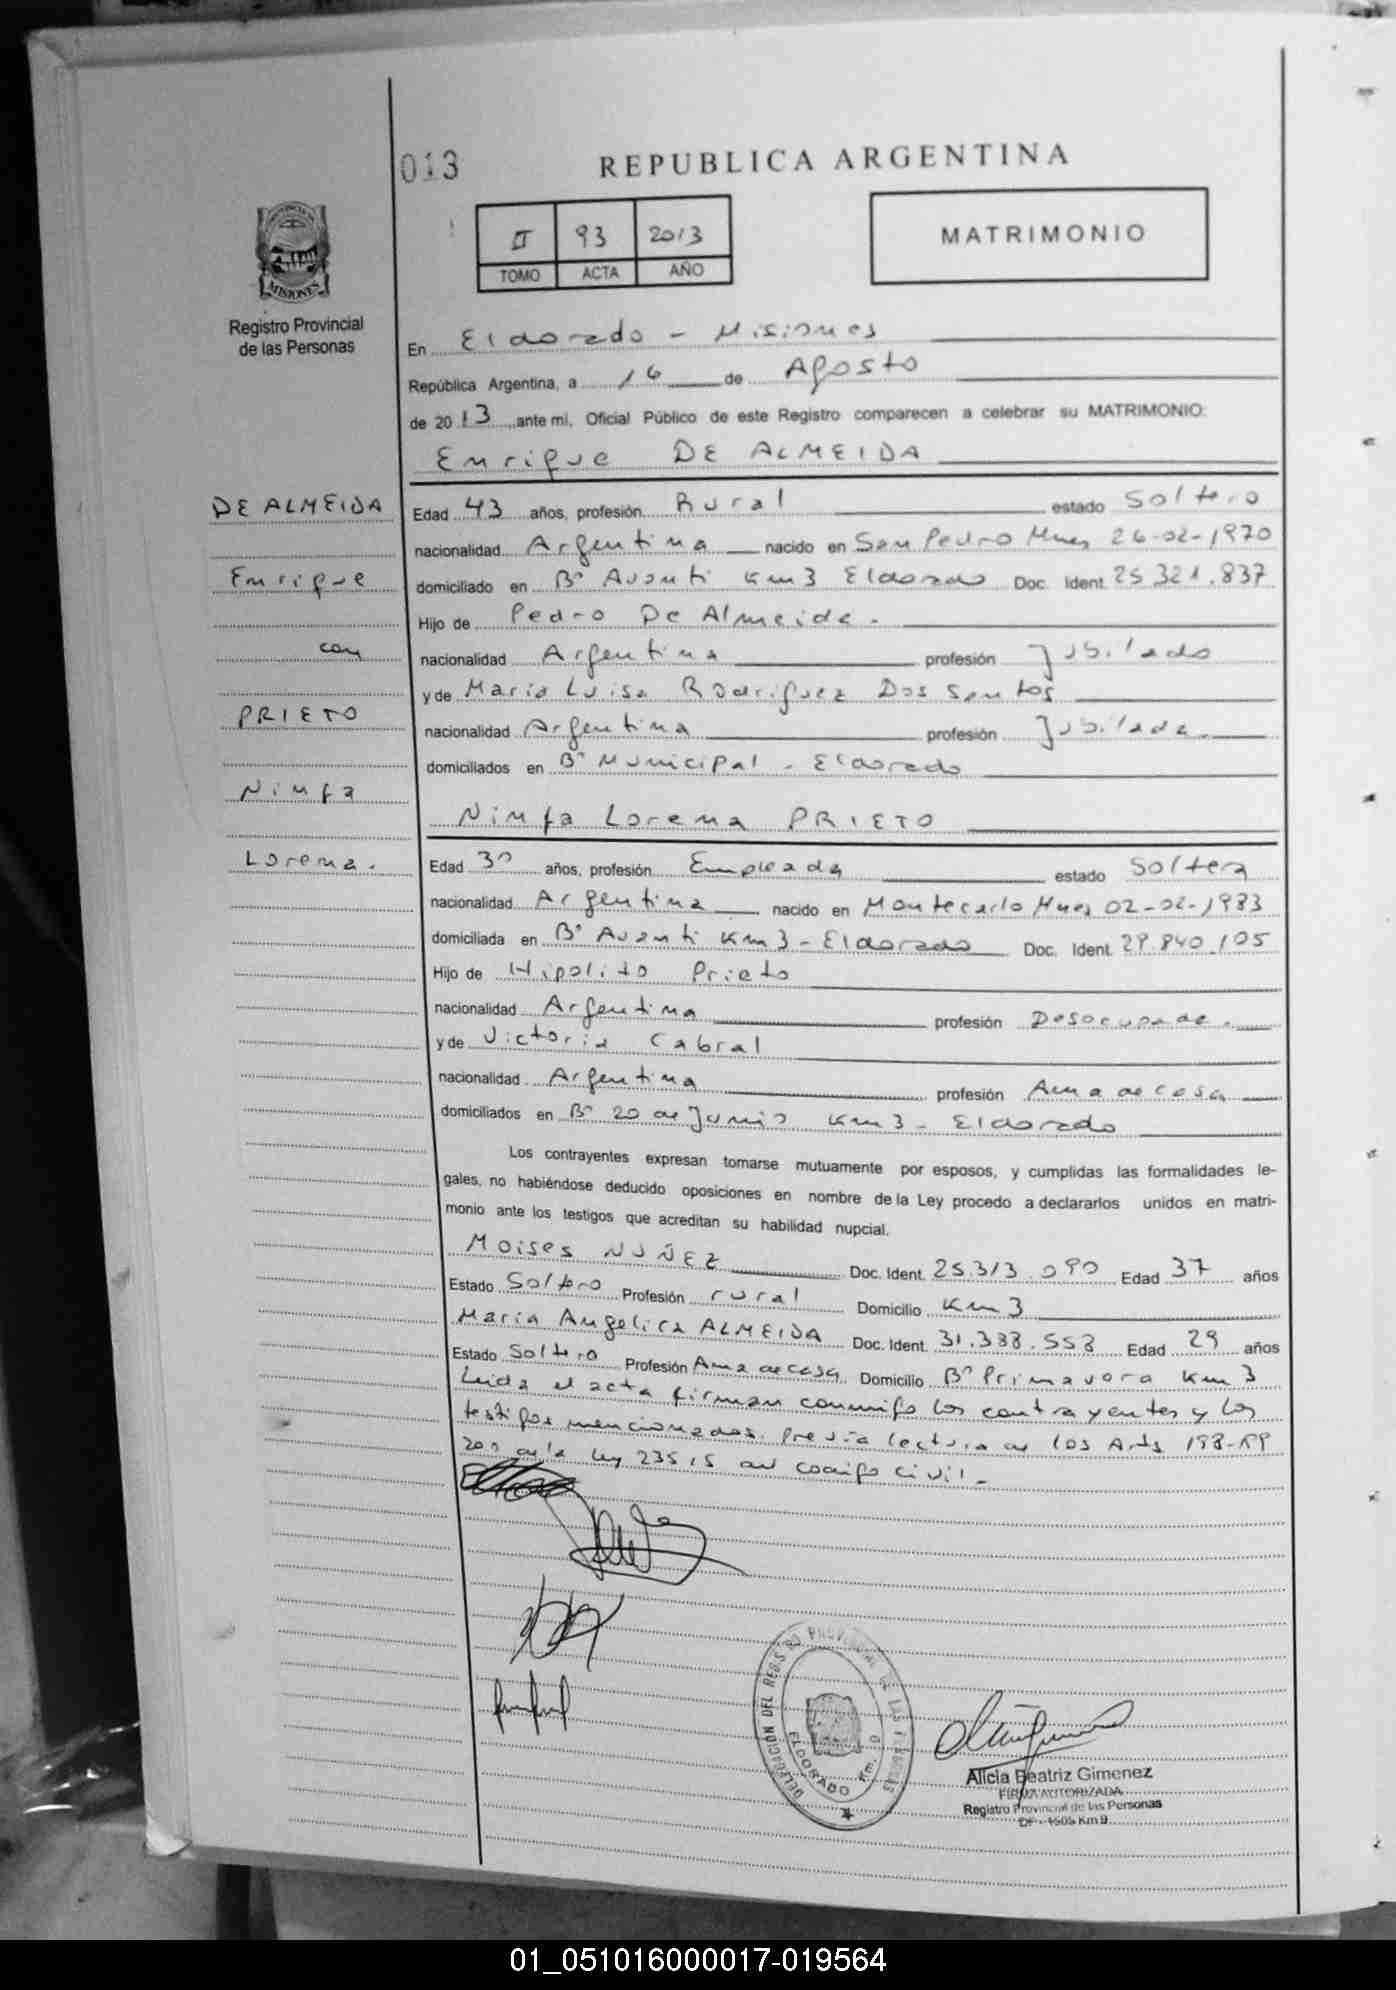 013
REPUBLICA ARGENTINA
II 93 2013
TOMO ACTA AÑO
MATRIMONIO
PROVINCIA DE
MISIONES
Registro Provincial
de las Personas
En Eldorado - Misiones
República Argentina, a 16 de Agosto
de 2013 ante mi, Oficial Público de este Registro comparecen a celebrar su MATRIMONIO:
Enrique DE ALMEIDA
DE ALMEIDA
Enrique
con
PRIETO
Ninfa
Lorena.
Edad 43 años, profesión Rural estado Soltero
nacionalidad Argentina nacido en San Pedro Mnes 26-02-1970
domiciliado en Bº Avanti Km3 Eldorado Doc. Ident. 25.321.837
Hijo de Pedro De Almeida.
nacionalidad Argentina profesión Jubilado
y de Maria Luisa Rodriguez Dos Santos
nacionalidad Argentina profesión Jubilada.
domiciliados en Bº Municipal - Eldorado
Ninfa Lorena PRIETO
Edad 30 años, profesión Empleada estado Soltera
nacionalidad Argentina nacido en Montecarlo Mnes 02-02-1983
domiciliada en Bº Avanti Km3 - Eldorado Doc. Ident. 29.840.105
Hijo de Hipolito Prieto
nacionalidad Argentina profesión Desocupado.
y de Victoria Cabral
nacionalidad Argentina profesión Ama de casa
domiciliados en Bº 20 de Junio Km3 - Eldorado
Los contrayentes expresan tomarse mutuamente por esposos, y cumplidas las formalidades le-
gales, no habiéndose deducido oposiciones en nombre de la Ley procedo a declararlos unidos en matri-
monio ante los testigos que acreditan su habilidad nupcial.
Moises NUÑEZ Doc. Ident. 25.313.090 Edad 37 años
Estado Soltero Profesión rural Domicilio Km3
Maria Angelica ALMEIDA Doc. Ident. 31.388.558 Edad 29 años
Estado Soltero Profesión Ama de casa Domicilio Bº Primavera Km 3
Leida el acta firman conmigo los contrayentes y los
testigos mencionados. previa lectura de los Arts 198-199
200 de la ley 23515 del codigo civil -
DELEGACION DEL REGISTRO PROVINCIAL DE LAS PERSONAS
ELDORADO Km.
Alicia Beatriz Gimenez
FIRMA AUTORIZADA
Registro Provincial de las Personas
Km 9
01_051016000017-019564